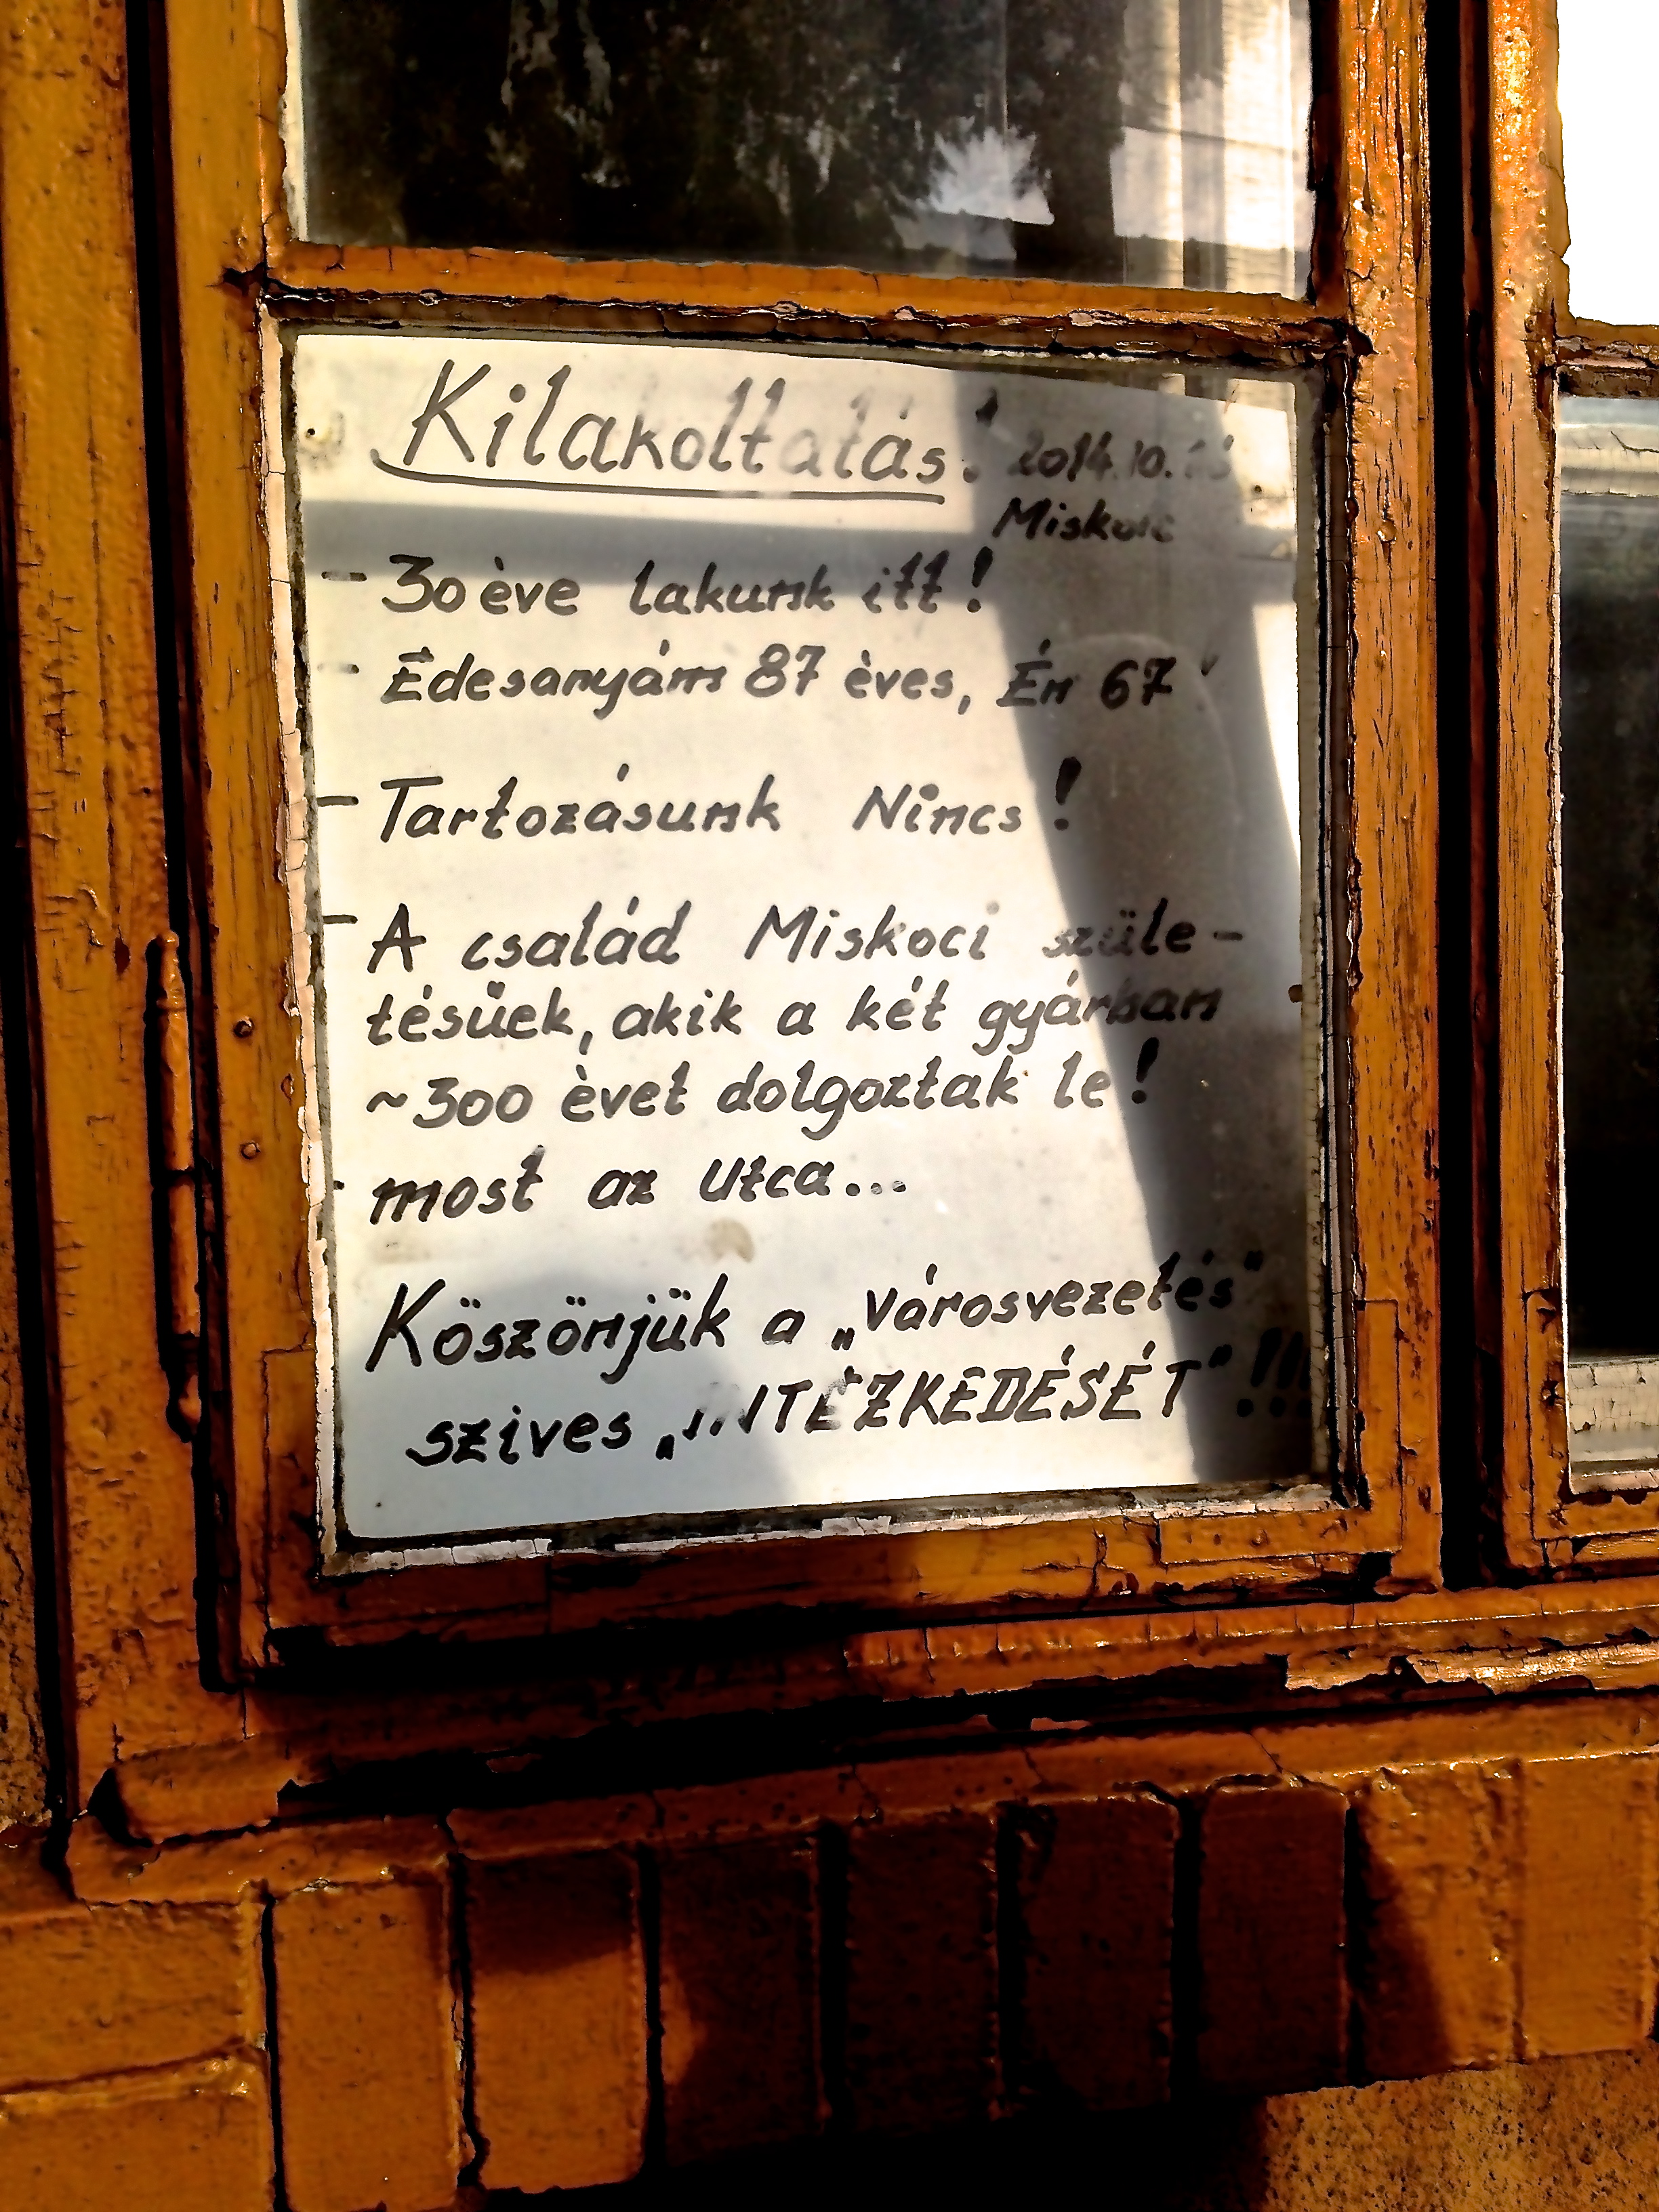 Kilakoltatás! 2014.10.
Miskolc
- 30 éve lakunk itt!
- Édesanyám 87 éves, Én 67
- Tartozásunk Nincs!
- A család Miskoci szüle-
tésűek, akik a két gyárban
~300 évet dolgoztak le!
- most az utca...
Köszönjük a „Városvezetés"
szives „INTÉZKEDÉSÉT" !!!